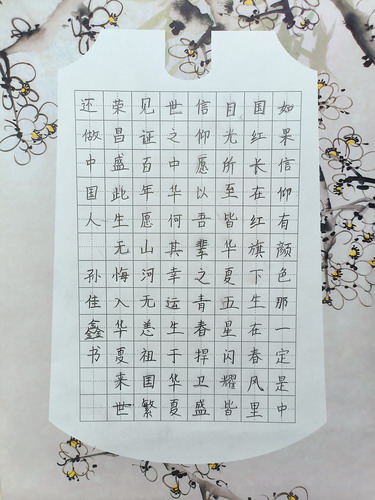 如果信仰有颜色那一定是中
国红长在红旗下生在春风里
目光所至皆华夏五星闪耀皆
信仰愿以吾辈之青春捍卫盛
世之中华何其幸运生于华夏
见证百年愿山河无恙祖国繁
荣昌盛此生无悔入华夏来世
还做中国人 孙佳鑫书